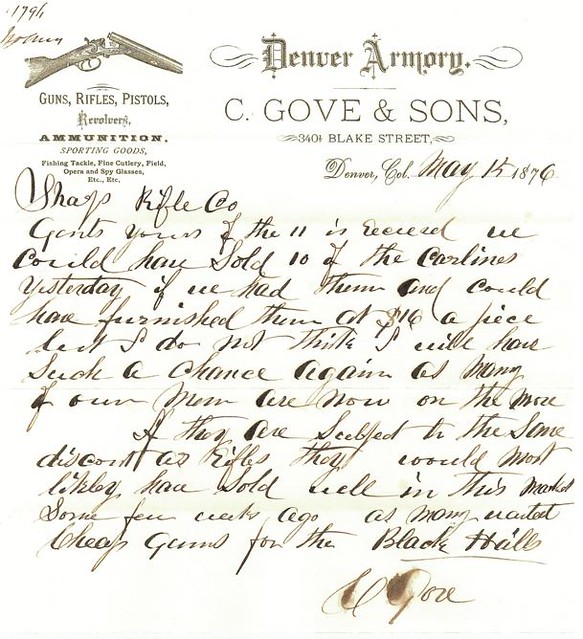 1794
Denver Armory.
C. GOVE & SONS,
340½ BLAKE STREET,
GUNS, RIFLES, PISTOLS,
Revolvers,
AMMUNITION.
SPORTING GOODS,
Fishing Tackle, Fine Cutlery, Field,
Opera and Spy Glasses,
Etc., Etc.
Denver, Col. May 15 1876
Sharps Rifle Co
Gents yours of the 11 is received we
could have sold 10 of the carlines
yesterday if we had them and could
have furnished them at $16 a piece
but I do not think I will have
such a chance again as many
of our men are now on the move
If they are subject to the same
discount as Rifles they would most
likley have sold well in this market
some few weeks ago as many wanted
cheap guns for the Black Hills
C Gove